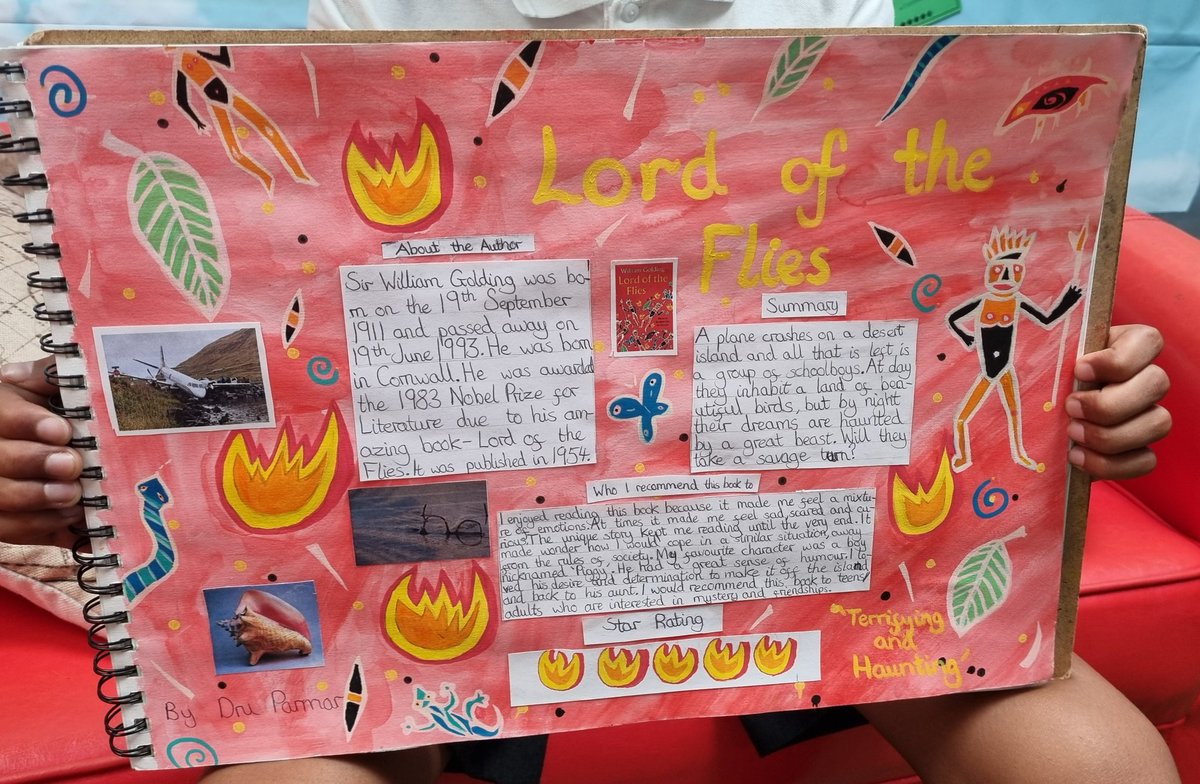 Lord of the
Flies
About the Author
Sir William Golding was bo-
rn on the 19th September
1911 and passed away on
19th June 1993. He was born
in Cornwall. He was awarded
the 1983 Nobel Prize for
Literature due to his am-
azing book- Lord of the
Flies. It was published in 1954.
William Golding
Lord of the
Flies
Summary
A plane crashes on a desert
island and all that is left is
a group of schoolboys. At day
they inhabit a land of bea-
utiful birds, but by night
their dreams are haunted
by a great beast. Will they
take a savage turn?
Who I recommend this book to
I enjoyed reading this book because it made me feel a mixtu-
re of emotions. At times it made me feel sad, scared and cu-
rious. The unique story kept me reading until the very end. It
made wonder how I would cope in a similar situation, away
from the rules of society. My favourite character was a boy
nicknamed Piggy. He had a great sense of humour. I lo-
ved his desire and determination to make it off the island
and back to his aunt. I would recommend this book to teens/
adults who are interested in mystery and friendships.
Star Rating
"Terrifying
and
Haunting"
By Dru Parmar